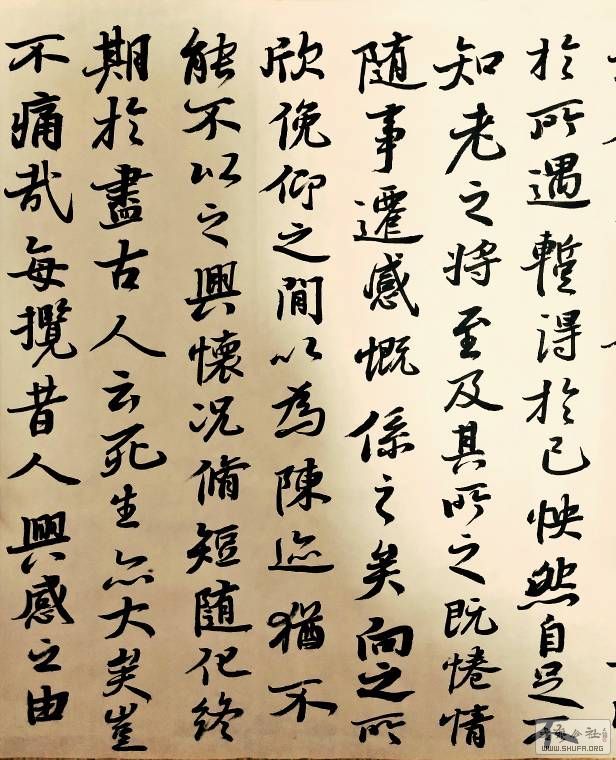 於所遇暫得於己怏然自足不
知老之將至及其所之既惓情
随事遷感慨係之矣向之所
欣俛仰之閒以為陳迹猶不
能不以之興懷况脩短随化終
期於盡古人云死生亦大矣豈
不痛哉每攬昔人興感之由
WWW.SHUFA.ORG